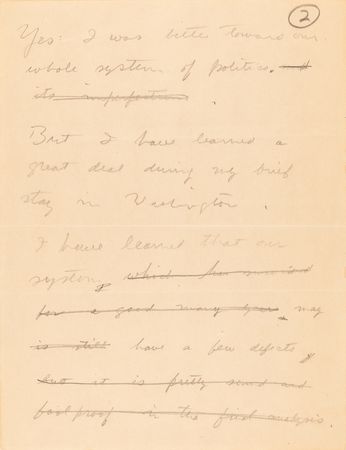 2
Yes: I was bitter toward our
whole system of politics. and
its imperfections.
But I have learned a
great deal during my brief
stay in Washington.
I have learned that our
system, which has survived
for a good many years, may
is still have a few defects,
but it is pretty sound and
fool proof in the final analysis.